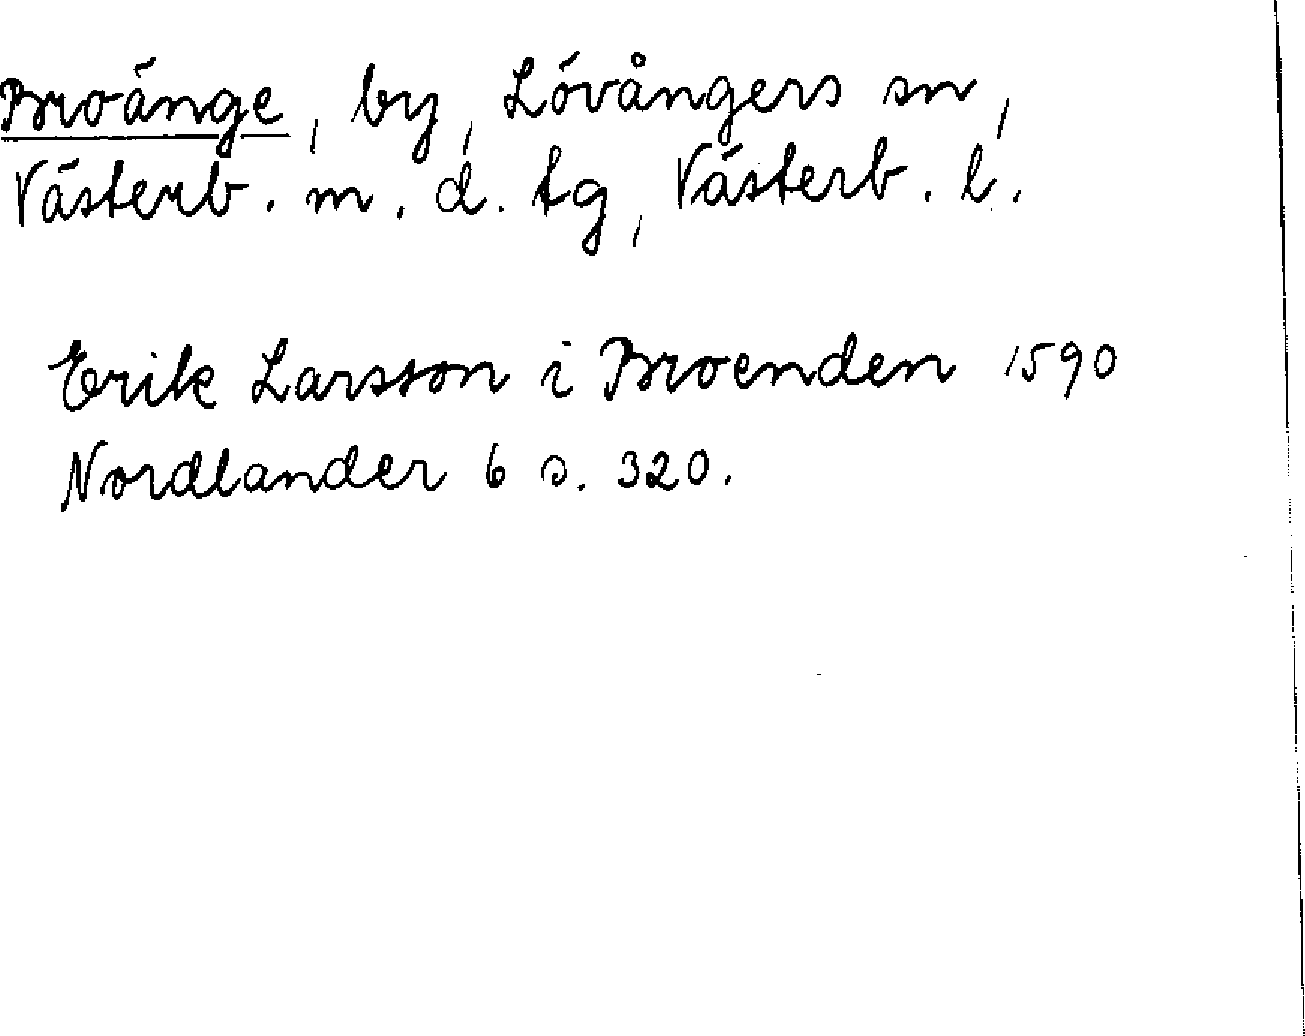 Broänge, by, Lövångers sn,
Västerb. m. d. tg, Västerb. l.
Erik Larsson i Broenden 1590
Nordlander 6 s. 320.